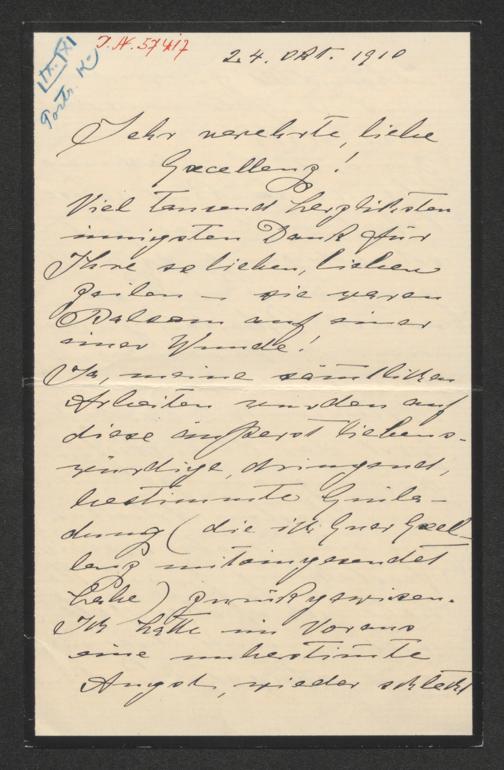 I.N. 57417
24. Okt. 1910
IX. XI
Portr. K
Sehr verehrte, liebe
Excellenz!
Viel Tausend herzlichsten
innigsten Dank für
Ihre so lieben, lieben
Zeilen – sie waren
Balsam auf einer
einer Wunde!
Ja, meine sämtlichen
Arbeiten wurden auf
diese äußerst liebens-
würdige, dringend,
bestimmte Einla-
dung (die ich Euer Excel-
lenz miteingesendet
habe) zurückgewiesen.
Ich hatte im Voraus
eine unbestimmte
Angst, wieder schlecht